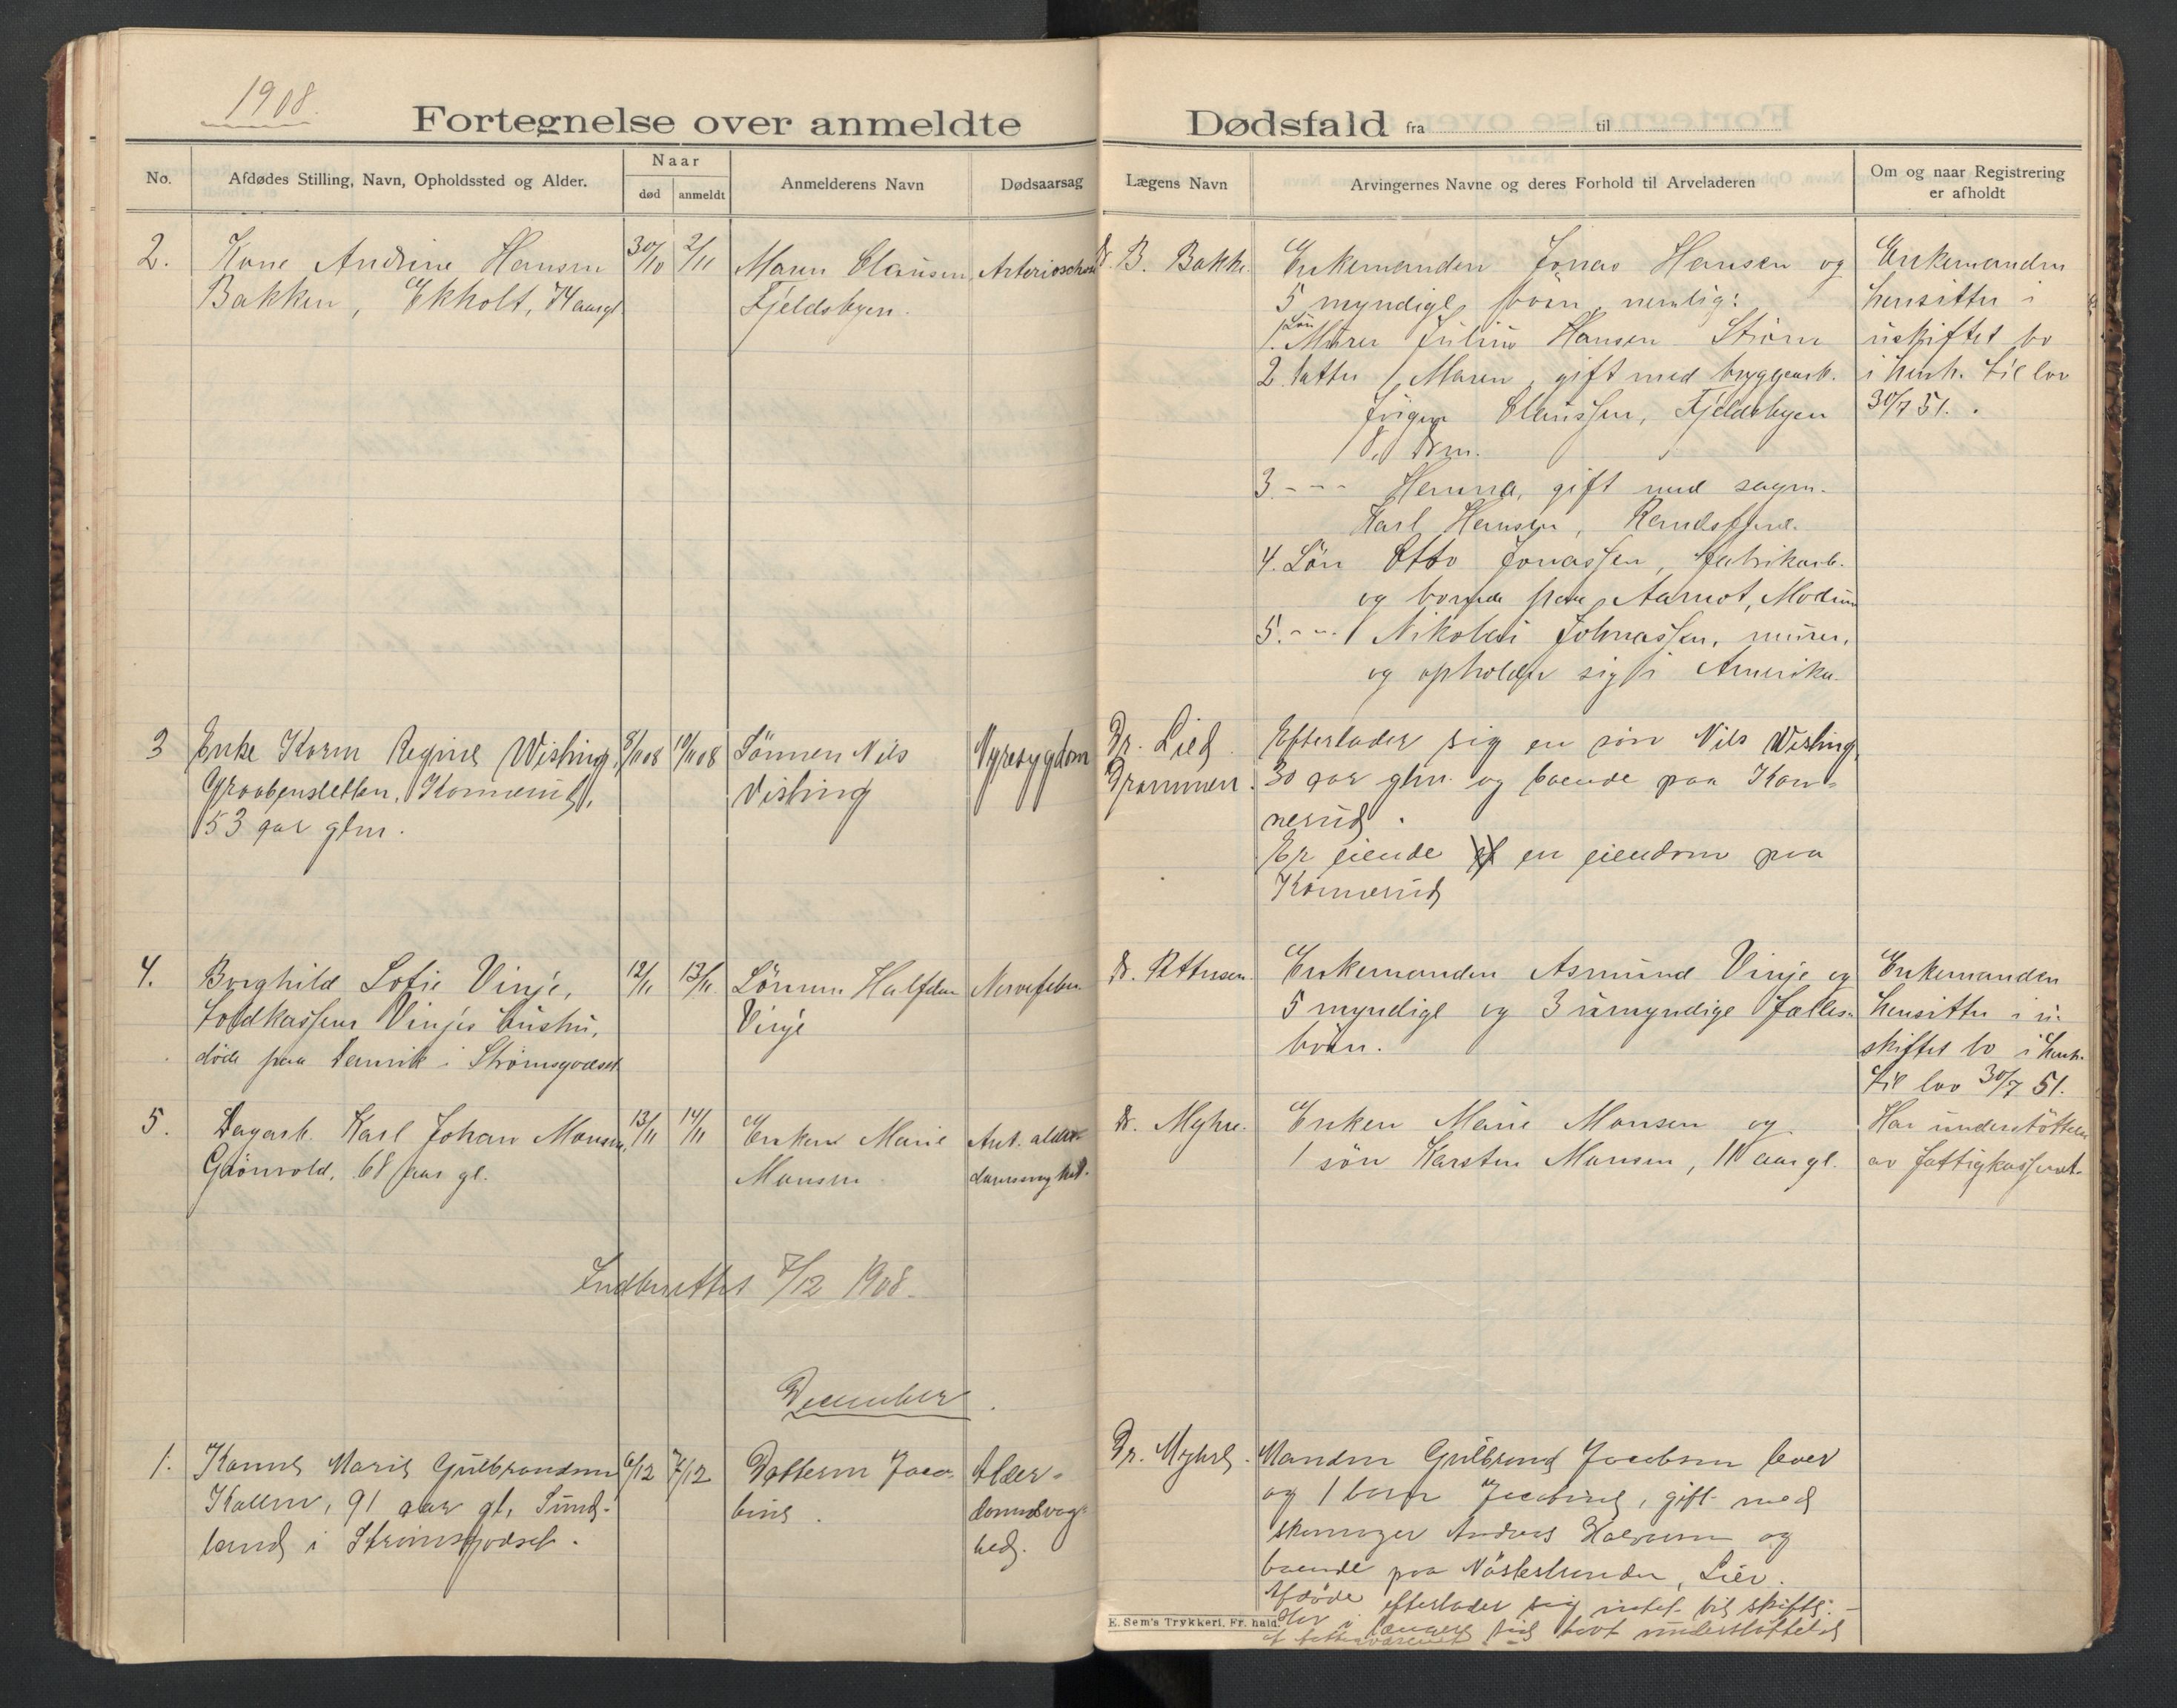 1908.
Fortegnelse over anmeldte
No.
Afdødes Stilling, Navn, Opholdssted og Alder.
Naar
død
anmeldt
Anmelderens Navn
Dødsaarsag
2.
Kone Andrine Hansen
Bakken, Ekholt, 74 aargl
30/10
2/11
Maren Clausen
Fjeldsbyen.
3
Enke Karen Regine Wisting,
Graabensletten, Konnerud,
53 aar glm.
8/11 08
10/11 08
Sønnen Nils
Visting
Nyresygdom
4.
Borghild Sofie Vinje,
Toldkasserer Vinjes hustru,
døde paa Damvik i Strømsgodset
12/11
13/11
Sønnen Halfdan
Vinje
Nervefeber
5.
Dagarb. Karl Johan Monsen,
Grønvold, 68 aar gl.
13/11
14/11
Enken Marie
Monsen
Ant. alder-
domssvaghed.
Indberettet 7/12 1908.
December.
1.
Konne Marie Gulbrandsen
Kallen, 91 aar gl. Sund-
land i Strømsgodset.
6/12
7/12
Datteren Jaco-
bine.
Alder-
domssvag-
hed.
Dødsfald fra til
Lægens Navn
Arvingernes Navne og deres Forhold til Arveladeren
Om og naar Registrering
er afholdt
Dr. B. Bakke.
Enkemanden Jonas Hansen og
5 myndige børn, nemlig:
1. Søn Murer Julius Hansen Strøm
2. datter Maren, gift med bryggearb.
Jørgen Claussen, Fjeldsbyen
Drm.
3. - - - Hanna, gift med sagm.
Karl Hansen, Randsfjord.
4. Søn Otto Jonassen, fabrikarb.
og boende paa Aamot, Modum
5. - - - Nikolai Johnassen, murer,
og opholder sig i Amerika.
Enkemanden
hensitter i
uskiftet bo
i henh. til lov
30/7 51.
Dr. Lied
Drammen.
Efterlader sig en søn Nils Wisting,
30 aar glm. og boende paa Kon-
nerud.
Er eiende en eiendom paa
Konnerud
Enkemanden Asmund Vinje og
5 myndige og 3 umyndige fælles-
børn.
Enkemanden
hensitter i u-
skiftet bo i henh.
til lov 30/7 51.
Dr. Myhre.
Enken Marie Monsen og
1 søn Karsten Monsen, 11 aar gl.
Har understøttelse
av fattigkassen
Dr. Myhre.
Manden Gulbrand Jacobsen lever
og 1 barn Jacobine, gift med
skomager Andreas Halvorsen og
boende paa Nøstestranden, Lier.
Afdøde efterlader sig intet til skifte.
Har i længere tid havt understøttelse
af fattigvæsenet
E. Sem's Trykkeri, Fr. hald.